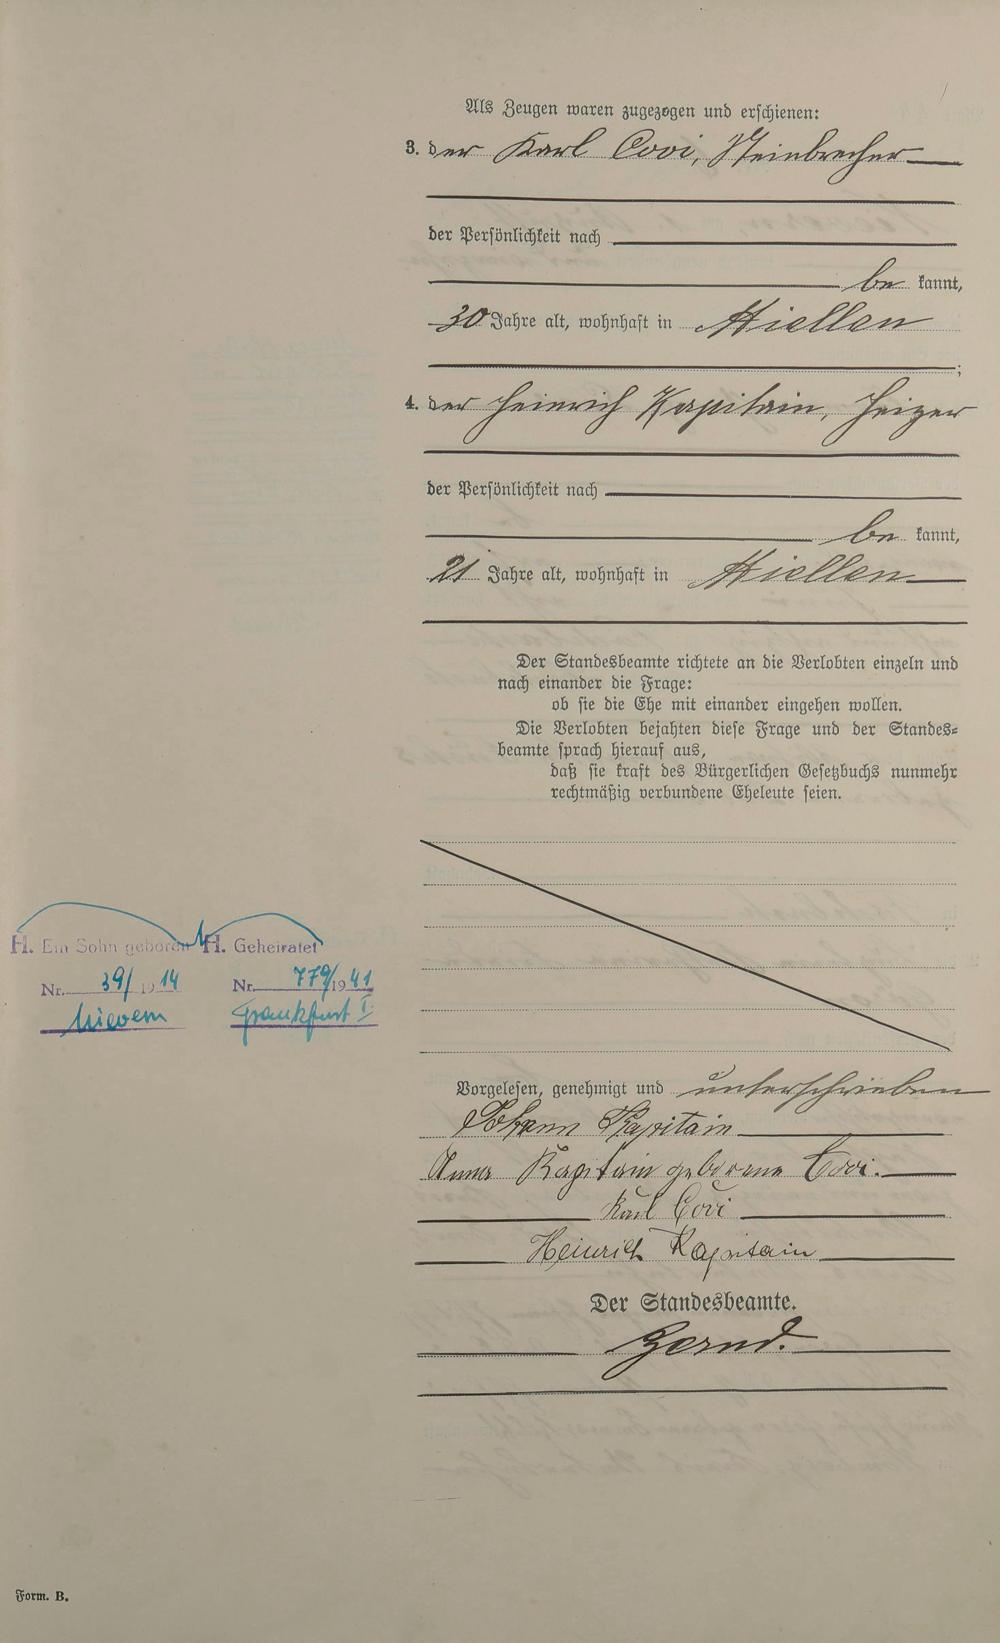 Als Zeugen waren zugezogen und erschienen:
3. der Karl Covi, Steinbrecher
der Persönlichkeit nach
be kannt,
30 Jahre alt, wohnhaft in Miellen
;
4. der Heinrich Kapitain, Heizer
der Persönlichkeit nach
be kannt,
21 Jahre alt, wohnhaft in Miellen
Der Standesbeamte richtete an die Verlobten einzeln und
nach einander die Frage:
ob sie die Ehe mit einander eingehen wollen.
Die Verlobten bejahten diese Frage und der Standes-
beamte sprach hierauf aus,
daß sie kraft des Bürgerlichen Gesetzbuchs nunmehr
rechtmäßig verbundene Eheleute seien.
H. Ein Sohn geboren
Nr. 39/1914
Nievern
H. Geheiratet
Nr. 779/1941
Frankfurt I
Vorgelesen, genehmigt und unterschrieben
Johann Kapitain
Anna Kapitain geborene Covi.
Karl Covi
Heinrich Kapitain
Der Standesbeamte.
Form. B.